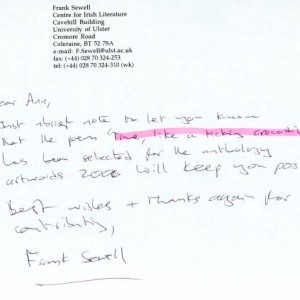 Frank Sewell
Centre for Irish Literature
Cavehill Building
University of Ulster
Cromore Road
Coleraine, BT 52 7SA
e-mail: F.Sewell@ulst.ac.uk
fax: (+44) 028 70 324-253
tel: (+44) 028 70 324-310 (wk)
ear Ann,
Just a brief note to let you know
that the poem "Time, like a ticking crocodil
has been selected for the anthology
artwords 2000. Will keep you pos
Best wishes + thanks again for
contributing,
Frank Sewell